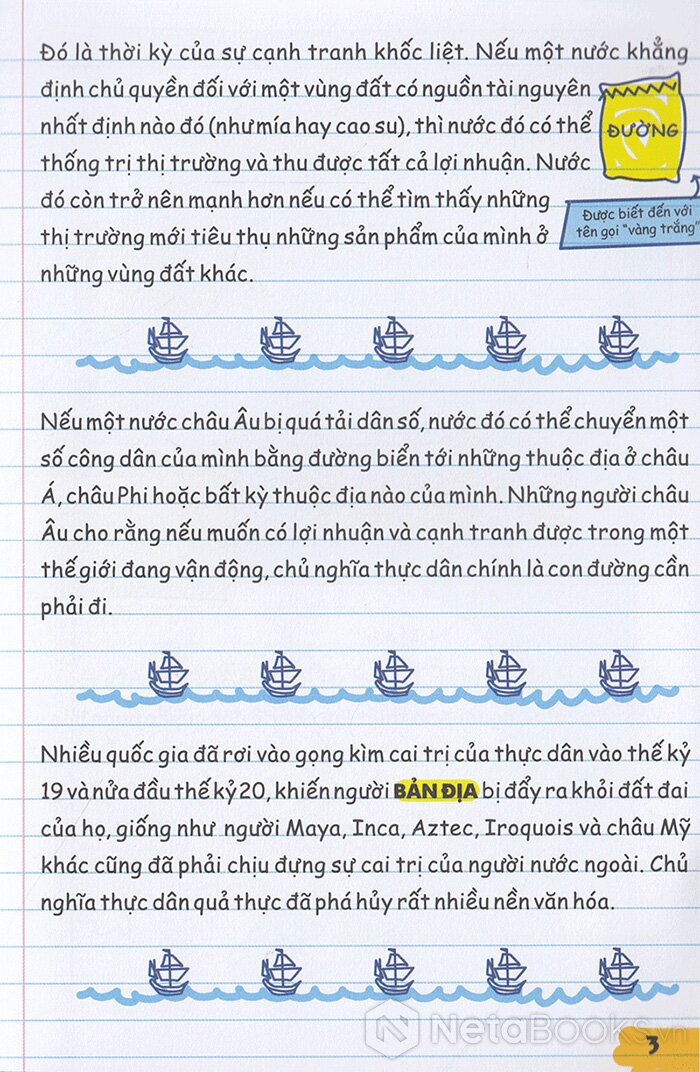 Đó là thời kỳ của sự cạnh tranh khốc liệt. Nếu một nước khẳng
định chủ quyền đối với một vùng đất có nguồn tài nguyên
nhất định nào đó (như mía hay cao su), thì nước đó có thể
thống trị thị trường và thu được tất cả lợi nhuận. Nước
đó còn trở nên mạnh hơn nếu có thể tìm thấy những
thị trường mới tiêu thụ những sản phẩm của mình ở
những vùng đất khác.
ĐƯỜNG
Được biết đến với
tên gọi "vàng trắng"
Nếu một nước châu Âu bị quá tải dân số, nước đó có thể chuyển một
số công dân của mình bằng đường biển tới những thuộc địa ở châu
Á, châu Phi hoặc bất kỳ thuộc địa nào của mình. Những người châu
Âu cho rằng nếu muốn có lợi nhuận và cạnh tranh được trong một
thế giới đang vận động, chủ nghĩa thực dân chính là con đường cần
phải đi.
Nhiều quốc gia đã rơi vào gọng kìm cai trị của thực dân vào thế kỷ
19 và nửa đầu thế kỷ 20, khiến người BẢN ĐỊA bị đẩy ra khỏi đất đai
của họ, giống như người Maya, Inca, Aztec, Iroquois và châu Mỹ
khác cũng đã phải chịu đựng sự cai trị của người nước ngoài. Chủ
nghĩa thực dân quả thực đã phá hủy rất nhiều nền văn hóa.
NetaBooks.vn
3